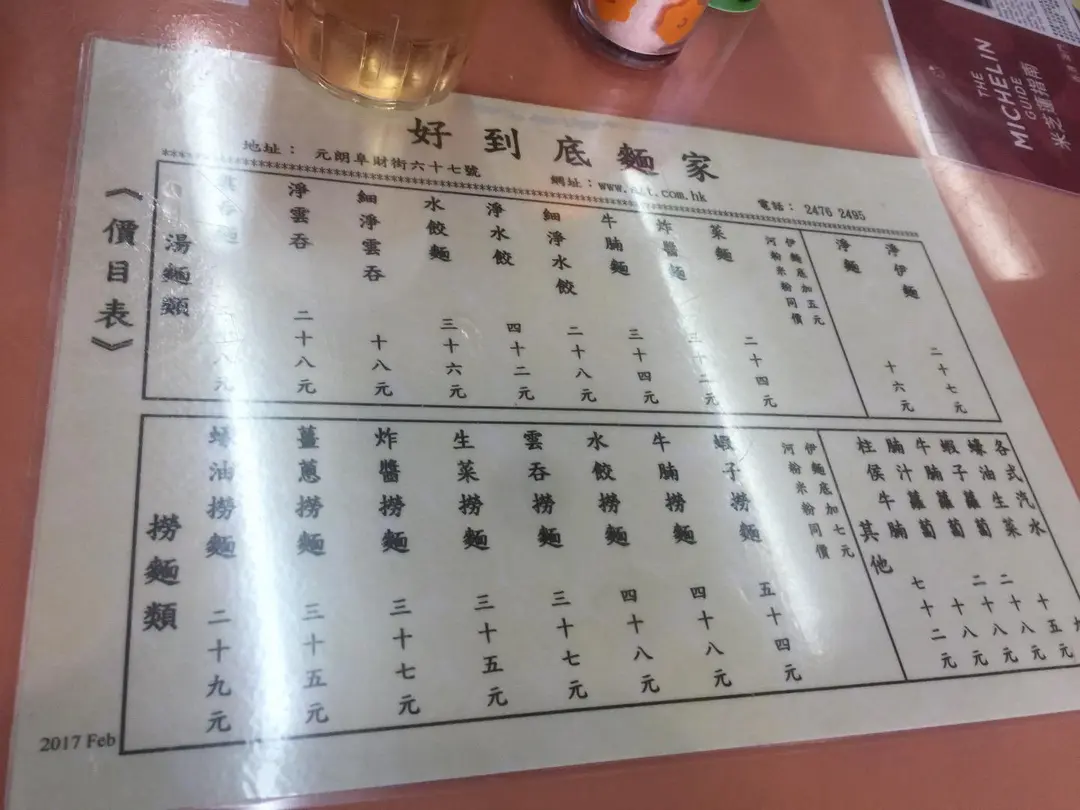 好到底麵家
地址： 元朗阜財街六十七號
網址：
電話： 2476 2495
《價目表》
湯麵類
淨雲吞 二十八元
細淨雲吞 十八元
水餃麵 三十六元
淨水餃 四十二元
細淨水餃 二十八元
牛腩麵 三十四元
炸醬麵 三十二元
菜麵 二十四元
伊麵底加五元
河粉米粉同價
淨麵 十六元
淨伊麵 二十七元
撈麵類
蠔油撈麵 二十九元
薑蔥撈麵 三十五元
炸醬撈麵 三十七元
生菜撈麵 三十五元
雲吞撈麵 三十七元
水餃撈麵 四十八元
牛腩撈麵 四十八元
蝦子撈麵 五十四元
伊麵底加七元
河粉米粉同價
其他
柱侯牛腩 七十二元
腩汁蘿蔔 十八元
牛腩蘿蔔 二十八元
蝦子蘿蔔 二十八元
蠔油生菜 十五元
各式汽水 九
2017 Feb
THE
MICHELIN
GUIDE
米芝蓮指南